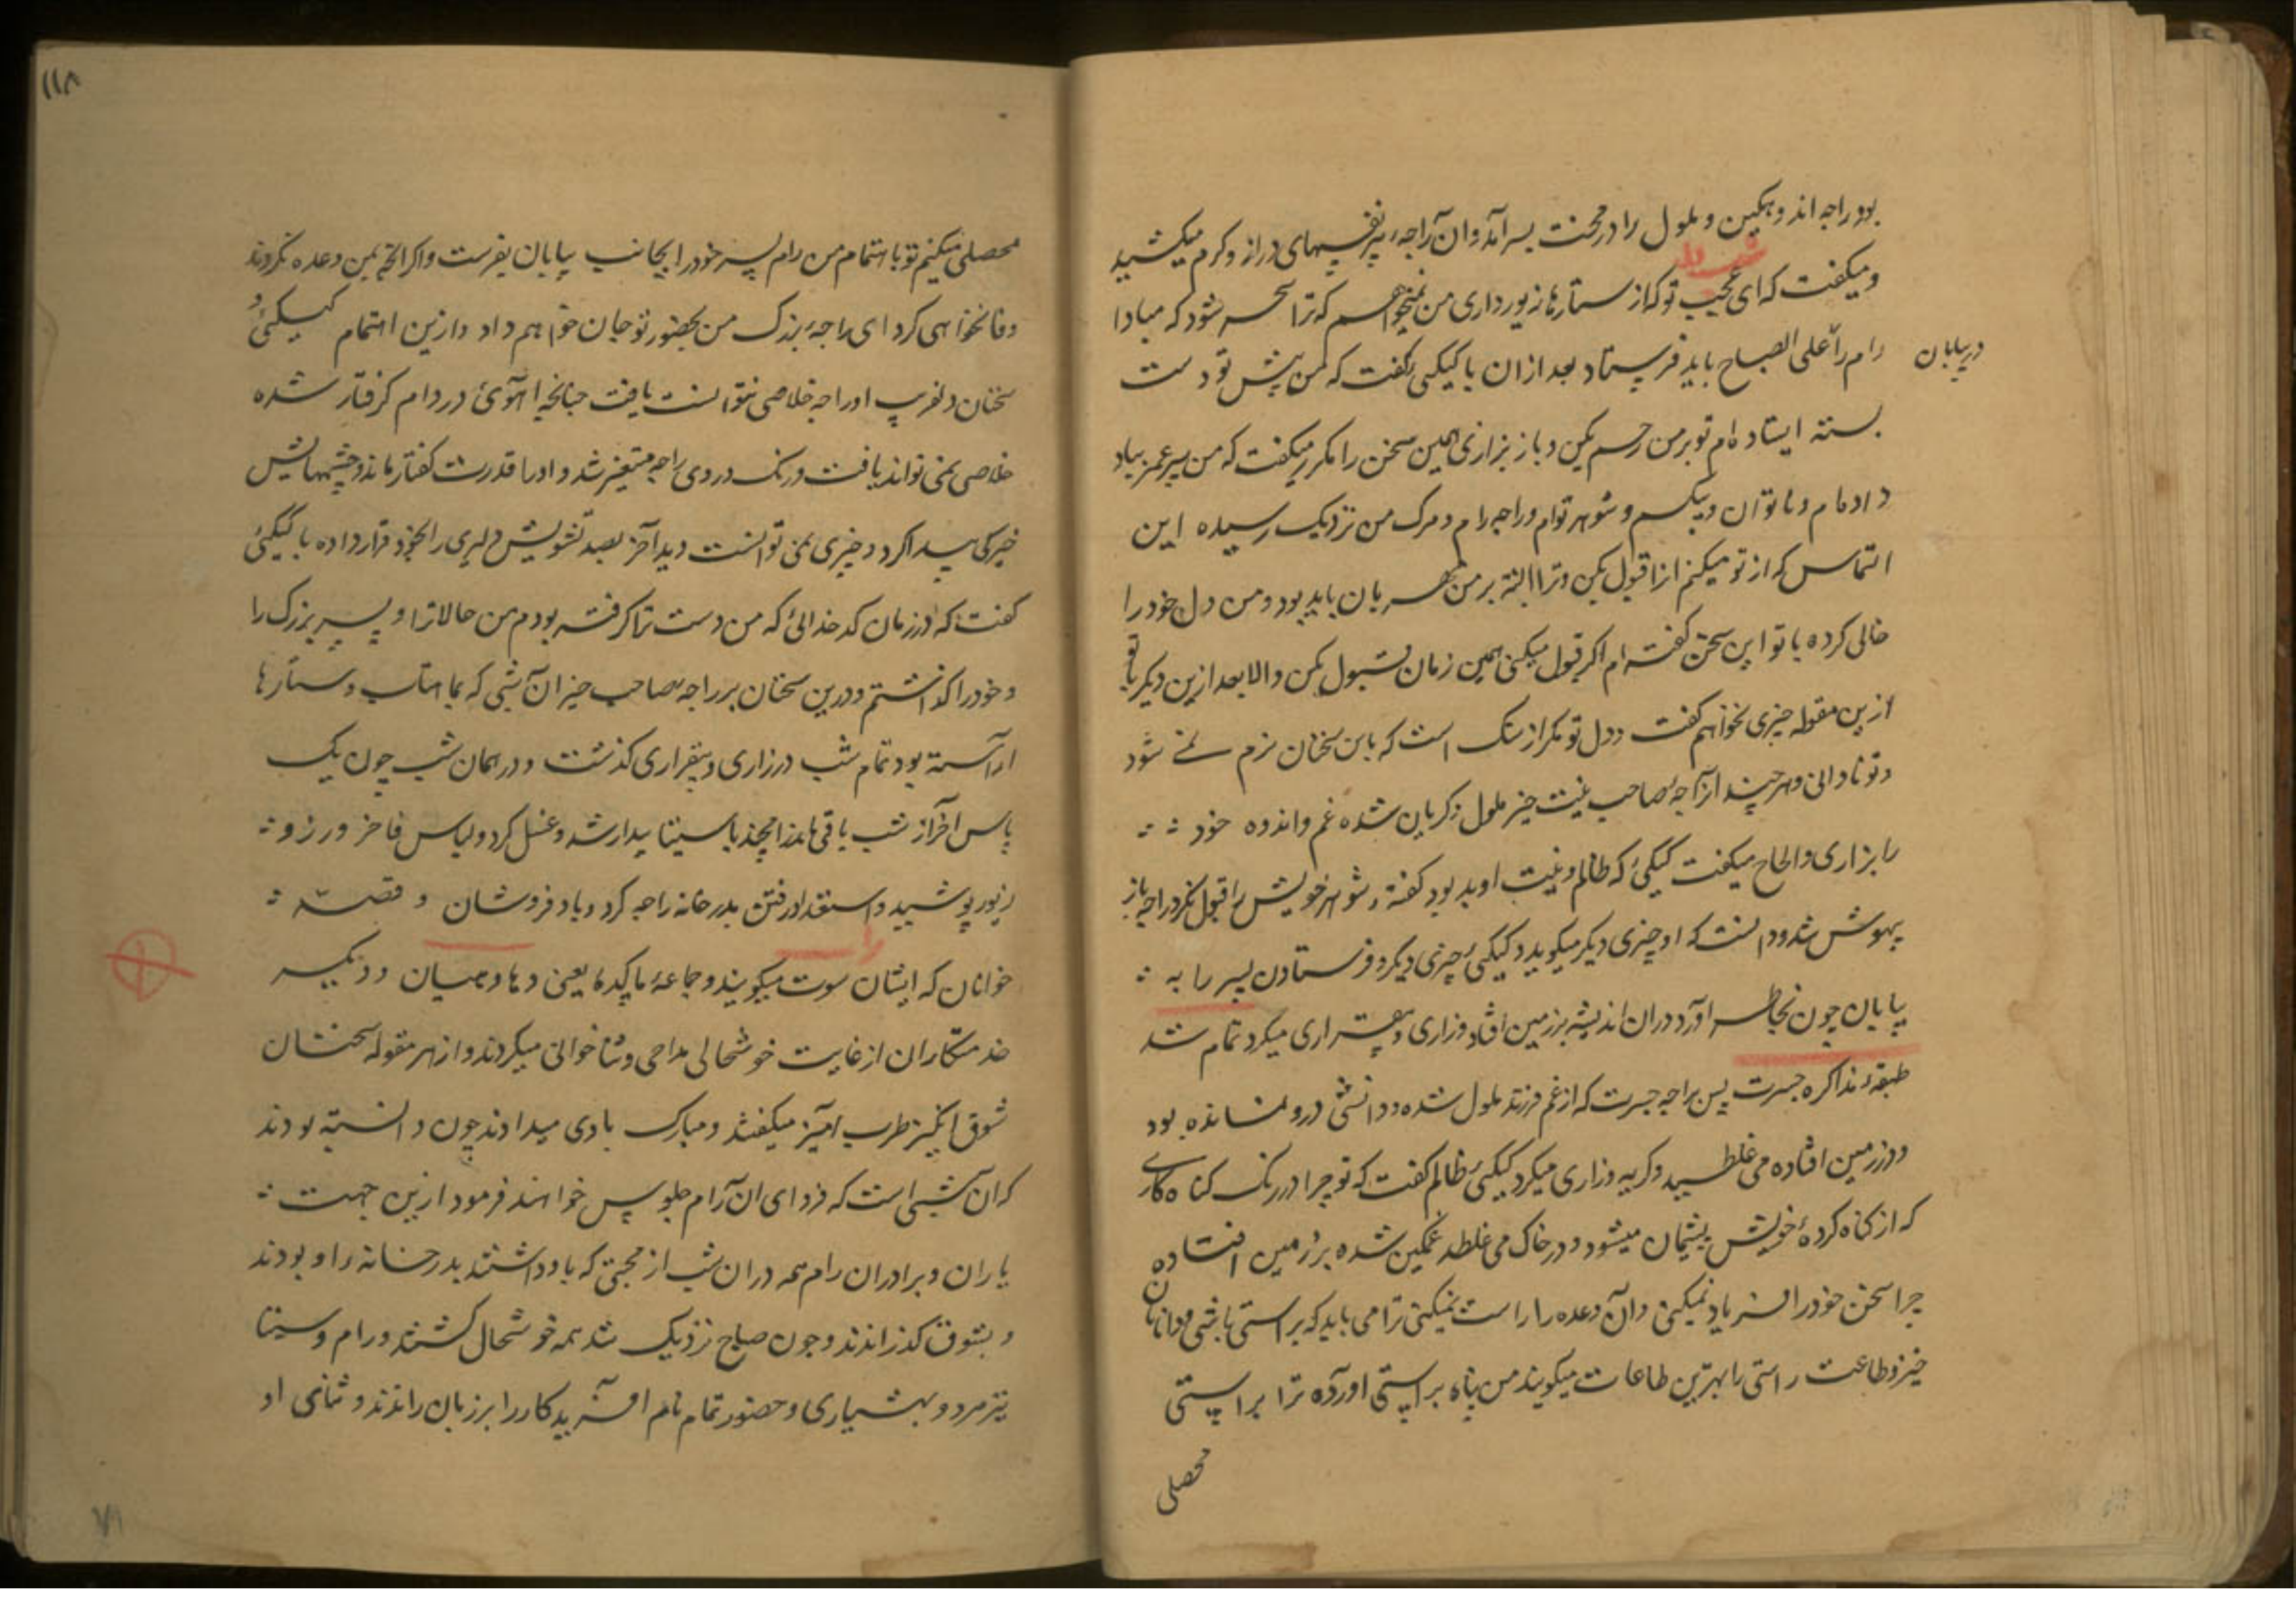 بود راجه اندوهگین و ملول را در محنت بسر آمد و آن راجه پیر نفسهای دراز و گرم میکشید
و میکفت که ای شب تو که از ستارها زیور داری من نمیخواهم که ترا سحر شود که مبادا
رام را علی الصباح باید فرستاد بعد ازان با کیکئی گفت که من پیش تو دست
در بیابان
بسته ایستاده ام تو بر من رحم بکن و باز بزاری همین سخن را مکرر میکفت که من پیر عمر بباد
داده ام و ناتوان و بیکسم و شوهر توام و راجه ام و مرک من نزدیک رسیده این
التماس که از تو میکنم انرا قبول بکن و ترا البته بر من مهربان باید بود و من دل خود را
خالی کرده با تو این سخن گفته ام اکر قبول میکنی همین زمان قبول بکن والا بعد ازین دیکر با تو
ازین مقوله چیزی نخواهم کفت و دل تو مکر از سنک است که باین سخنان نرم نمی شود
و تو نادانی و هر چند آن راجه صاحب نیت خیر ملول و کریان شده غم و اندوه خود
را بزاری و الحاح میکفت کیکئی که ظالم و نیت او بد بود کفته شوهر خویش را قبول نکرد راجه باز
بیهوش شد و دانست که او چیزی دیکر میکوید و کیکئی چیزی دیکر و فرستادن پسر را به
بیابان چون بخاطر آورد در ان اندیشه بر زمین افتاد و زاری و بیقراری میکرد تمام شد
طبقه مذاکره جسرت پس راجه جسرت که از غم فرزند ملول شده و دانشی درو نمانده بود
و در زمین افتاده می غلطید و کریه و زاری میکرد کیکئی ظالم کفت که تو چرا در رنک کناه کاری
که از کناه کرده خویش پشیمان میشود و در خاک می غلطد غمکین شده بر زمین افتاده
چرا سخن خود را یاد نمیکنی و آن وعده را راست نمیکنی ترا می باید که براستی باشی و دانایان
خیر و طاعت راستی را بهترین طاعات میکویند من پناه براستی اورده ترا براستی
محصلی
۱۱۸
محصلی میکنم تو باهتمام من رام پسر خود را بجانب بیابان بفرست و اکر انچه بمن وعده کردی
وفا نخواهی کرد ای راجه بزرک من بحضور تو جان خواهم داد و ازین اهتمام کیکئی و
سخنان دلفریب او راجه خلاصی نتوانست یافت چنانچه اهوئی در دام کرفتار شده
خلاصی نمی تواند یافت و رنک و روی راجه متغیر شد و اورا قدرت کفتار نماند و چشمهایش
خیرکی پیدا کرد و چیزی نمی توانست دید آخر بصد تشویش دلیری را بخود قرار داده با کیکئی
کفت که در زمان کدخدائی که من دست ترا کرفته بودم من حالا ترا و پسر بزرک را
و خود را کذاشتم و درین سخنان بر راجه صاحب خیر آن شبی که بماهتاب و ستارها
اراسته بود تمام شب در زاری و بیقراری کذشت و در همان شب چون یک
پاس آخر از شب باقی ماند رامچند با سیتا بیدار شد و غسل کرد و لباس فاخر و
زیور پوشید و استعداد رفتن بدرخانه راجه کرد و باد فروشان و قصه
خوانان که ایشان را سوت میکویند و جماعه ماکده یعنی و دیکر
خدمتکاران از غایت خوشحالی مداحی و ثنا خوانی میکردند و از هر مقوله سخنان
شوق انکیز طرب امیز میکفتند و مبارک بادی میدادند چون دانسته بودند
که آن شبی است که فردای ان رام جلوس خواهند فرمود ازین جهت
یاران و برادران رام همه دران شب از محبتی که باو داشتند بدرخانه او بودند
و بشوق کذراندند و چون صباح نزدیک شد همه خوشحال کشتند و رام و سیتا
نیز هر دو بهشیاری و حضور تمام نام آفریدکار را بر زبان راندند و ثنای او
۷۹